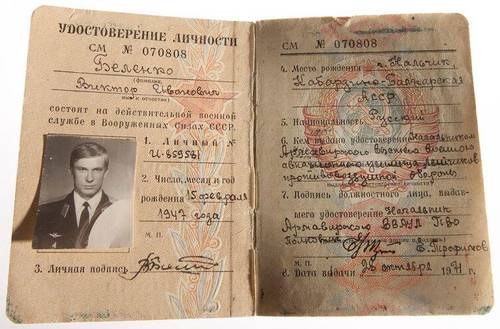 УДОСТОВЕРЕНИЕ ЛИЧНОСТИ
СМ № 070808
Беленко
(фамилия,
Виктор Иванович
имя и отчество)
состоит на действительной военной
службе в Вооруженных Силах СССР.
1. Личный №
2. Число, месяц и год
рождения 15 февраля
1947 года
м. п.
3. Личная подпись
СМ № 070808
4. Место рождения г. Нальчик,
Кабардино-Балкарская
АССР
5. Национальность Русский
6. Кем выдано удостоверение Начальником
Армавирского высшего военного
авиационного училища лётчиков
противовоздушной обороны
7. Подпись должностного лица, выдав-
шего удостоверение Начальник
Армавирского ВВАУЛ ПВО
Полковник Е. Трофимов
м. п.
Дата выдачи 26 октября 1971 г.